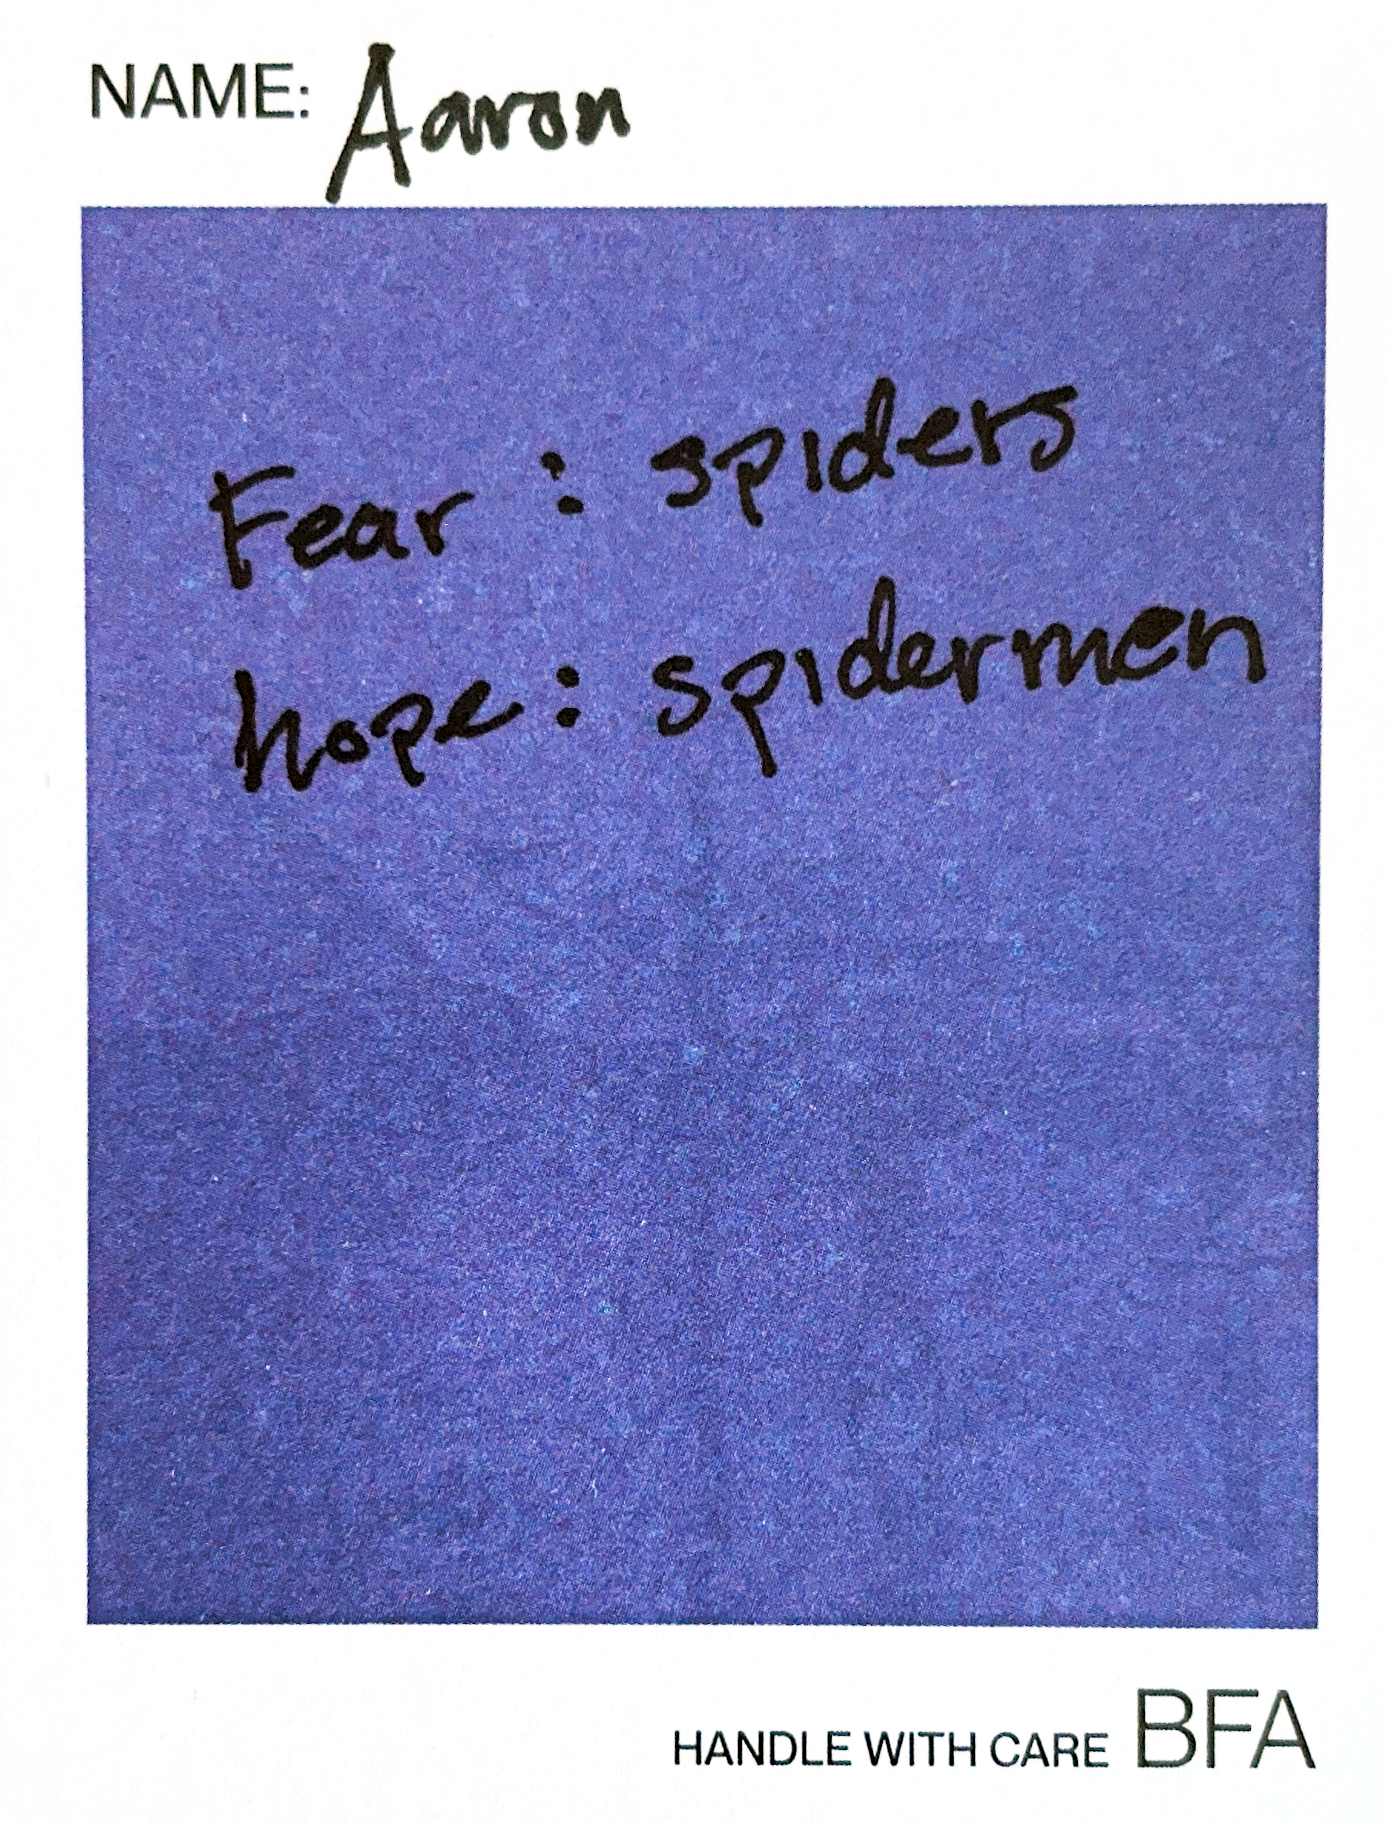 NAME: Aaron
Fear : spiders
hope : spidermen
HANDLE WITH CARE BFA